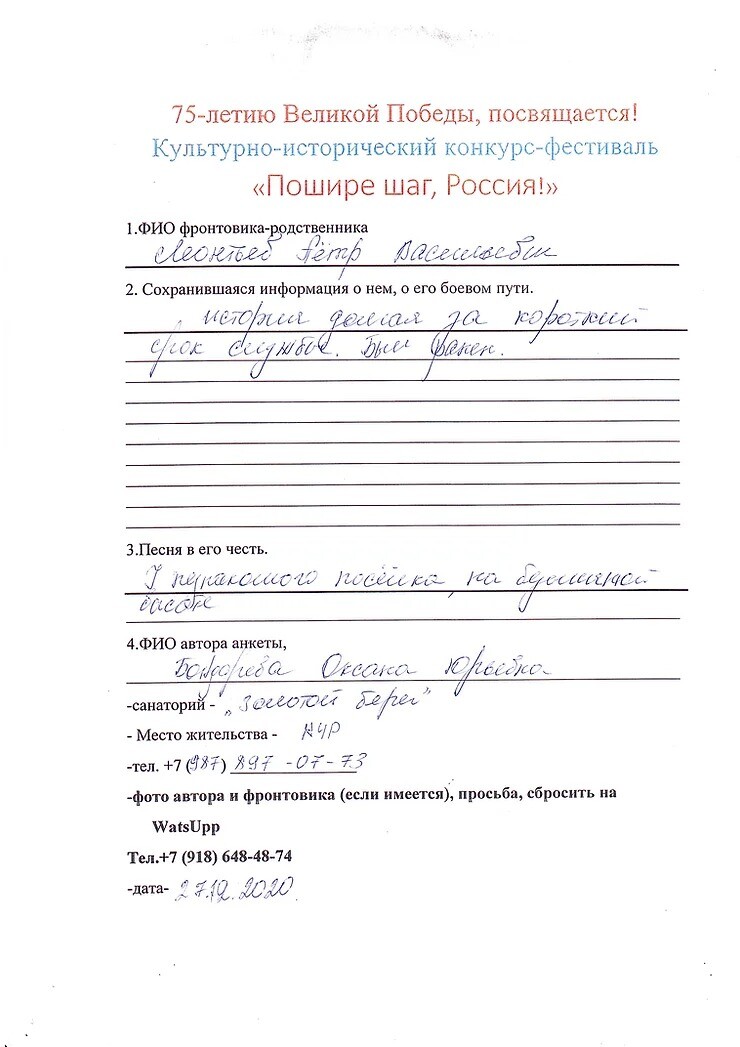 75-летию Великой Победы, посвящается!
Культурно-исторический конкурс-фестиваль
«Пошире шаг, Россия!»
1.ФИО фронтовика-родственника
Леонтьев Пётр Васильевич
2. Сохранившаяся информация о нем, о его боевом пути.
история долгая за короткий
срок службы. Был ранен.
3.Песня в его честь.
У незнакомого посёлка, на безымянной
высоте
4.ФИО автора анкеты,
Бондарева Оксана Юрьевна
-санаторий - „Золотой берег"
- Место жительства -
-тел. +7 (987) 897 -07-73
-фото автора и фронтовика (если имеется), просьба, сбросить на
WatsUpp
Тел.+7 (918) 648-48-74
-дата- 27.12.2020